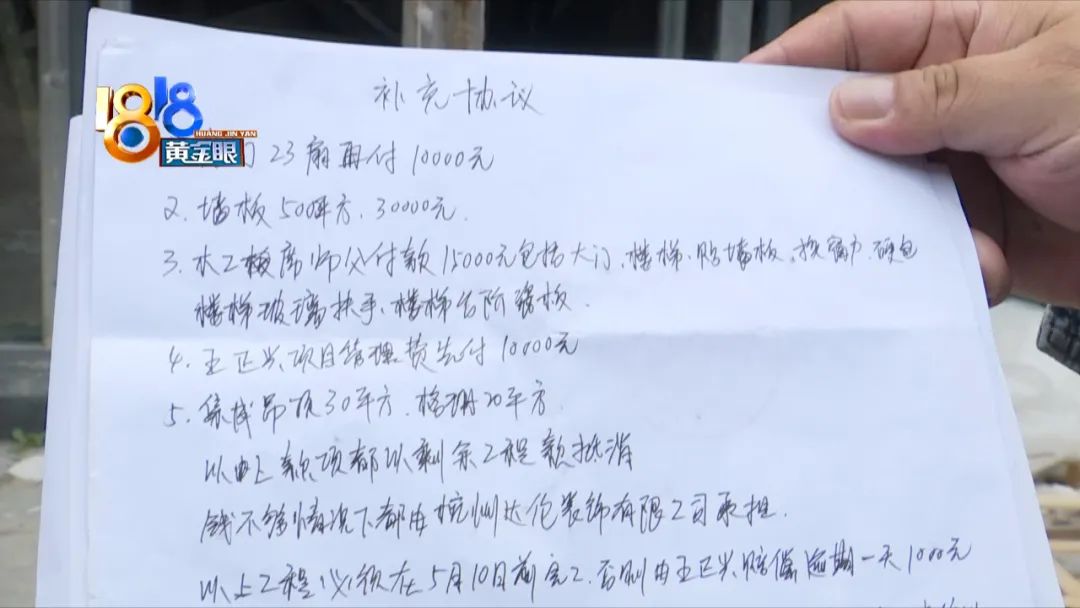 补充协议
1818
HUANG JIN YAN
黄金眼
门23扇再付10000元
2. 墙板500平方、30000元.
3. 木工板席师父付款15000元包括大门、楼梯、贴墙板、按窗户、硬包
楼梯玻璃扶手、楼梯台阶踏板.
4. 王正兴项目管理费先付10000元
5. 集成吊顶30平方、格栅20平方.
以上款项都以剩余工程款抵消
钱不够情况下都由杭州达伦装饰有限公司承担.
以上工程必须在5月10日前完工.否则由王正兴赔偿逾期一天1000元